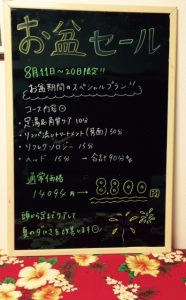 お盆セール
8月11日〜20日限り!!
お盆期間のスペシャルプラン!!
コース内容
・足湯&角質ケア 10分
・リンパ流しトリートメント(背面) 50分
・リフレクソロジー 15分
・ヘッド 15分 → 合計90分
通常価格
14094円 → 8,800円
頭から足までケアして
夏のダルさを改善します